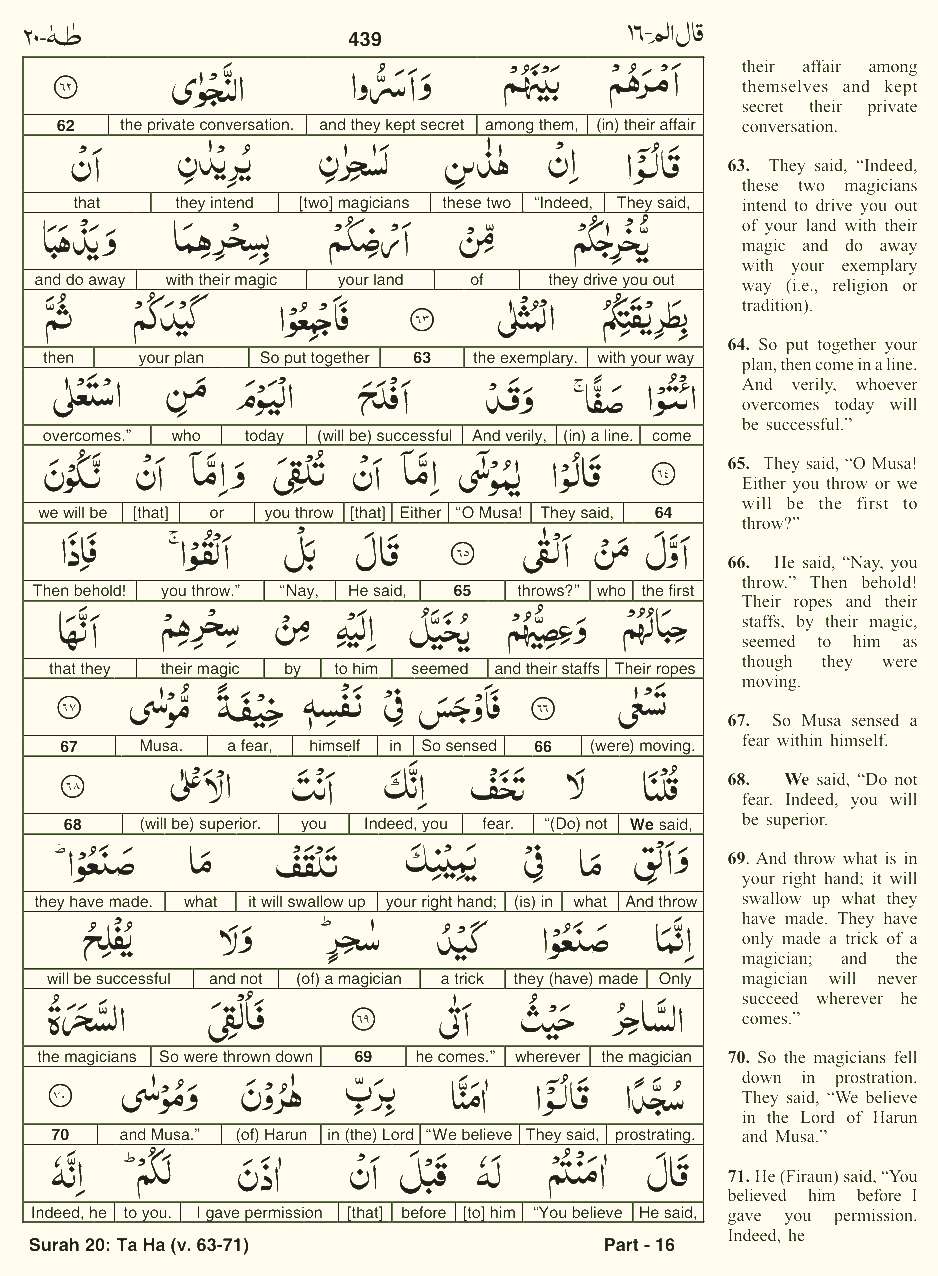 طٰهٰ-٢٠
439
قال الم-١٦
اَمْرَهُمْ بَيْنَهُمْ وَاَسَرُّوا النَّجْوٰى ٦٢
62 | the private conversation. | and they kept secret | among them, | (in) their affair
قَالُوْۤا اِنْ هٰذٰىنِ لَسٰحِرٰنِ يُرِيْدٰنِ اَنْ
that | they intend | [two] magicians | these two | “Indeed, | They said,
يُّخْرِجٰكُمْ مِّنْ اَرْضِكُمْ بِسِحْرِهِمَا وَيَذْهَبَا
and do away | with their magic | your land | of | they drive you out
بِطَرِيْقَتِكُمُ الْمُثْلٰى ٦٣ فَاَجْمِعُوْا كَيْدَكُمْ ثُمَّ
then | your plan | So put together | 63 | the exemplary. | with your way
ائْتُوْا صَفًّا ۚ وَقَدْ اَفْلَحَ الْيَوْمَ مَنِ اسْتَعْلٰى
overcomes.” | who | today | (will be) successful | And verily, | (in) a line. | come
٦٤ قَالُوْا يٰمُوْسٰۤى اِمَّاۤ اَنْ تُلْقِىَ وَاِمَّاۤ اَنْ نَّكُوْنَ
we will be | [that] | or | you throw | [that] | Either | “O Musa! | They said, | 64
اَوَّلَ مَنْ اَلْقٰى ٦٥ قَالَ بَلْ اَلْقُوْا ۚ فَاِذَا
Then behold! | you throw.” | “Nay, | He said, | 65 | throws?” | who | the first
حِبَالُهُمْ وَعِصِيُّهُمْ يُخَيَّلُ اِلَيْهِ مِنْ سِحْرِهِمْ اَنَّهَا
that they | their magic | by | to him | seemed | and their staffs | Their ropes
تَسْعٰى ٦٦ فَاَوْجَسَ فِىْ نَفْسِهٖ خِيْفَةً مُّوْسٰى ٦٧
67 | Musa. | a fear, | himself | in | So sensed | 66 | (were) moving.
قُلْنَا لَا تَخَفْ اِنَّكَ اَنْتَ الْاَعْلٰى ٦٨
68 | (will be) superior. | you | Indeed, you | fear. | “(Do) not | We said,
وَاَلْقِ مَا فِىْ يَمِيْنِكَ تَلْقَفْ مَا صَنَعُوْا ؕ
they have made. | what | it will swallow up | your right hand; | (is) in | what | And throw
اِنَّمَا صَنَعُوْا كَيْدُ سٰحِرٍ ؕ وَلَا يُفْلِحُ
will be successful | and not | (of) a magician | a trick | they (have) made | Only
السَّاحِرُ حَيْثُ اَتٰى ٦٩ فَاُلْقِىَ السَّحَرَةُ
the magicians | So were thrown down | 69 | he comes.” | wherever | the magician
سُجَّدًا قَالُوْۤا اٰمَنَّا بِرَبِّ هٰرُوْنَ وَمُوْسٰى ٧٠
70 | and Musa.” | (of) Harun | in (the) Lord | “We believe | They said, | prostrating.
قَالَ اٰمَنْتُمْ لَهٗ قَبْلَ اَنْ اٰذَنَ لَكُمْ ؕ اِنَّهٗ
Indeed, he | to you. | I gave permission | [that] | before | [to] him | “You believe | He said,
Surah 20: Ta Ha (v. 63-71)
Part - 16
their affair among
themselves and kept
secret their private
conversation.
63. They said, “Indeed,
these two magicians
intend to drive you out
of your land with their
magic and do away
with your exemplary
way (i.e., religion or
tradition).
64. So put together your
plan, then come in a line.
And verily, whoever
overcomes today will
be successful.”
65. They said, “O Musa!
Either you throw or we
will be the first to
throw?”
66. He said, “Nay, you
throw.” Then behold!
Their ropes and their
staffs, by their magic,
seemed to him as
though they were
moving.
67. So Musa sensed a
fear within himself.
68. We said, “Do not
fear. Indeed, you will
be superior.
69. And throw what is in
your right hand; it will
swallow up what they
have made. They have
only made a trick of a
magician; and the
magician will never
succeed wherever he
comes.”
70. So the magicians fell
down in prostration.
They said, “We believe
in the Lord of Harun
and Musa.”
71. He (Firaun) said, “You
believed him before I
gave you permission.
Indeed, he